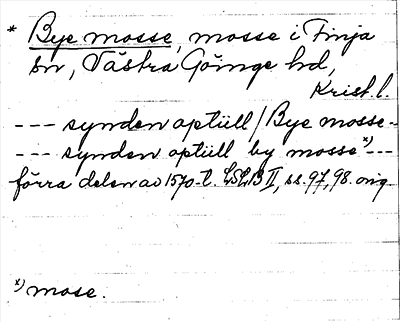 * Bye mosse, mosse i Finja
sn, Västra Göinge hd,
Krist. l.
--- synden aptüll / Bye mosse --
--- synden optüll by mosse x) ---
förra delen av 1570-t. LSLB II, ss. 97, 98. orig
x) mose.